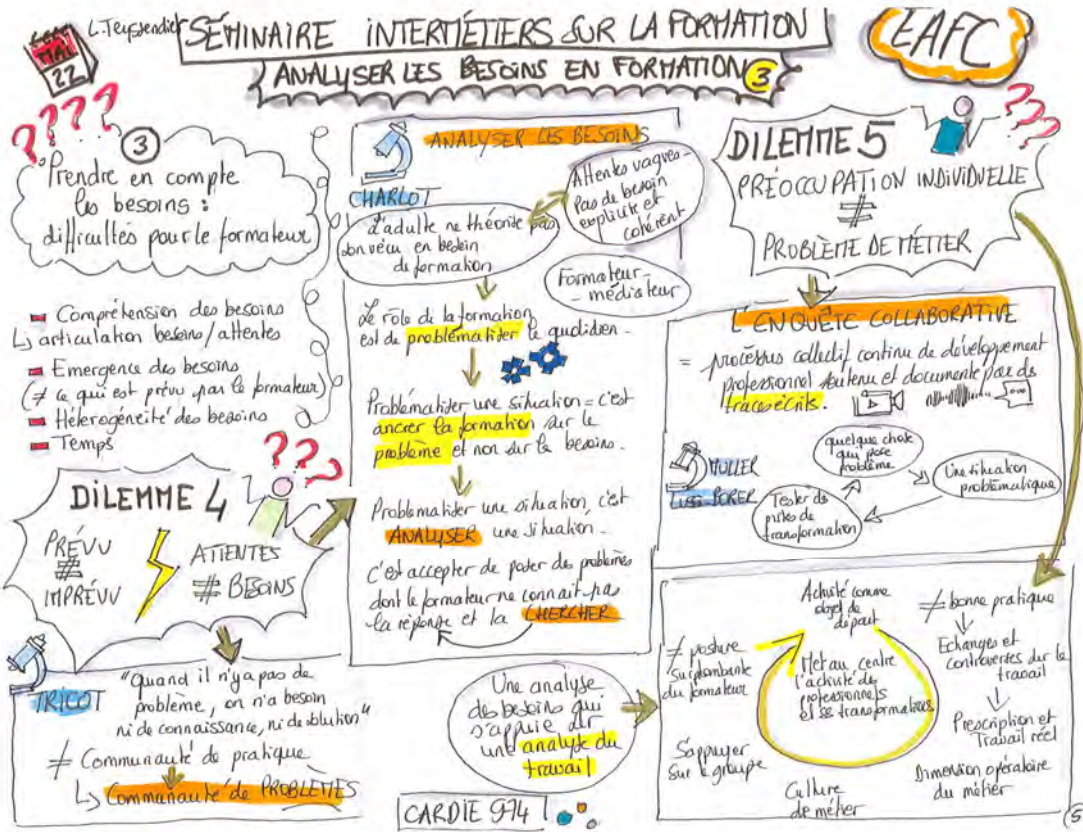 MAI
22
L. Teyssendier
SÉMINAIRE INTERMÉTIERS SUR LA FORMATION
ANALYSER LES BESOINS EN FORMATION 3
EAFC
????
3
Prendre en compte
les besoins :
difficultés pour le formateur
Compréhension des besoins
↳ articulation besoins/attentes
Emergence des besoins
(≠ ce qui est prévu par le formateur)
Hétérogéneité des besoins
Temps
???
DILEMME 4
PRÉVU
≠
IMPRÉVU
ATTENTES
≠ BESOINS
TRICOT
"Quand il n'y a pas de
problème, on n'a besoin
ni de connaissance, ni de solution"
≠ Communauté de pratique
↳ Communauté de PROBLÈMES
ANALYSER LES BESOINS
CHARLOT
Attentes vagues -
Pas de besoin
explicite et
cohérent
L'adulte ne théorise pas
son vécu en besoin
de formation
Formateur -
- médiateur
Le rôle de la formation
est de problématiser le quotidien -
Problématiser une situation = c'est
ancrer la formation sur le
problème et non sur le besoins.
Problématiser une situation, c'est
ANALYSER une situation -
c'est accepter de poser des problèmes
dont le formateur ne connait pas
la réponse et la CHERCHER
Une analyse
des besoins qui
s'appuie sur
une analyse du
travail
CARDIE 974
???
DILEMME 5
PRÉOCCUPATION INDIVIDUELLE
≠
PROBLÈME DE MÉTIER
L'ENQUÊTE COLLABORATIVE
= processus collectif continu de développement
professionnel soutenu et documenté par des
traces écrits.
MULLER
LUSSI-BORER
quelque chose
qui pose
problème
Une situation
problématique
Tester des
pistes de
transformation
Activité comme
objet de
départ
≠ bonne pratique
Echanges et
controverses sur le
travail
Prescription et
Travail réel
Dimension opératoire
du métier
Culture
de métier
S'appuyer
sur le groupe
≠ posture
surplombante
du formateur
Met au centre
l'activité des
professionnels
et ses transformations
5